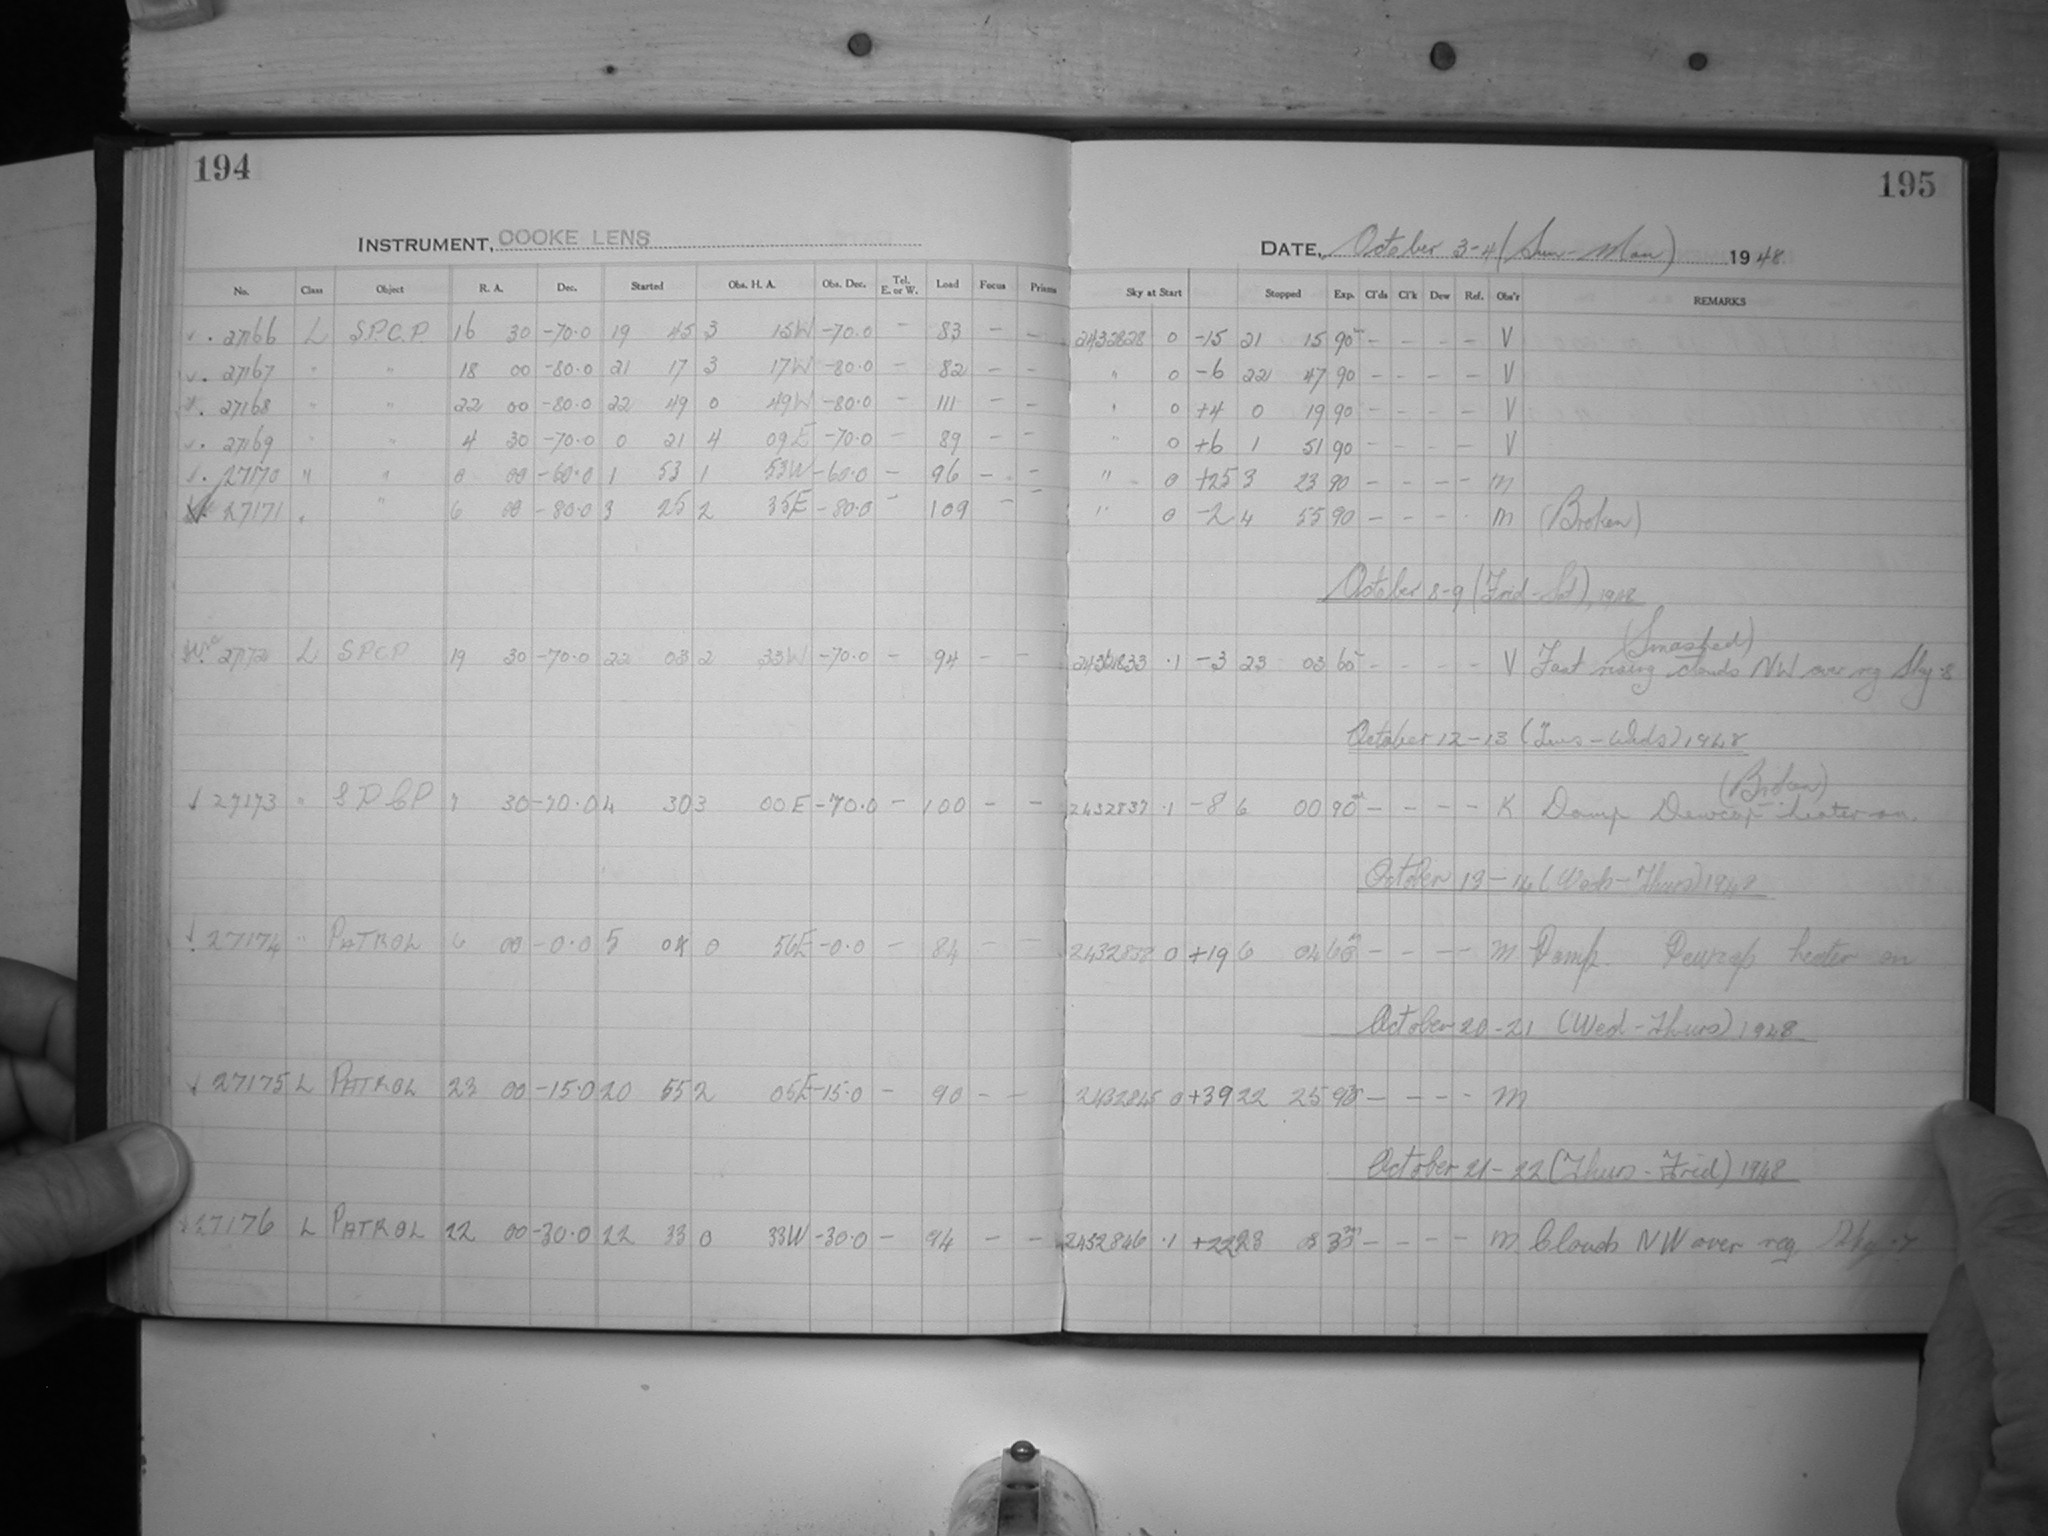 194
INSTRUMENT, COOKE LENS
No. Class Object R. A. Dec. Started Obs. H. A. Obs. Dec. Tel. E. or W. Load Focus Prisms
27166 L S.P.C.P. 16 30 -70.0 19 45 3 15W -70.0 - 83 - -
27167 " " 18 00 -80.0 21 17 3 17W -80.0 - 82 - -
27168 " " 22 00 -80.0 22 49 0 49W -80.0 - 111 - -
27169 " " 4 30 -70.0 0 21 4 09E -70.0 - 89 - -
27170 " " 0 00 -60.0 1 53 1 53W -60.0 - 96 - -
27171 " " 6 00 -80.0 3 25 2 35E -80.0 - 109 - -
27172 L S.P.C.P 19 30 -70.0 22 03 2 33W -70.0 - 94 - -
27173 " S P C P 7 30 -70.0 4 30 3 00E -70.0 - 100 - -
27174 " PATROL 6 00 -0.0 5 04 0 56E -0.0 - 84 - -
27175 L PATROL 23 00 -15.0 20 55 2 05E -15.0 - 90 - -
27176 L PATROL 22 00 -30.0 22 33 0 33W -30.0 - 94 - -
195
DATE, October 3-4 (Sun-Mon) 1948
Sky at Start Stopped Exp. Cl'ds Cl'k Dew Ref. Obs'r REMARKS
2432828 0 -15 21 15 90 - - - - V
" 0 -6 22 47 90 - - - - V
" 0 +4 0 19 90 - - - - V
" 0 +6 1 51 90 - - - - V
" 0 +25 3 23 90 - - - - M
" 0 -2 4 55 90 - - - - M (Broken)
October 8-9 (Frid-Sat), 1948
(Smashed)
2432833 .1 -3 23 03 60 - - - - V Fast rising clouds NW over reg Sky .8
October 12-13 (Tues-Weds) 1948
(Broken)
2432837 .1 -8 6 00 90 - - - - K Damp Dewcap heater on.
October 13-14 (Weds-Thurs) 1948
2432838 0 +19 6 04 60 - - - - M Damp. Dewcap heater on
October 20-21 (Wed-Thurs) 1948
2432845 0 +39 22 25 90 - - - - M
October 21-22 (Thurs-Frid) 1948
2432846 .1 +22 23 08 35 - - - - M Clouds NW over reg. Sky .7